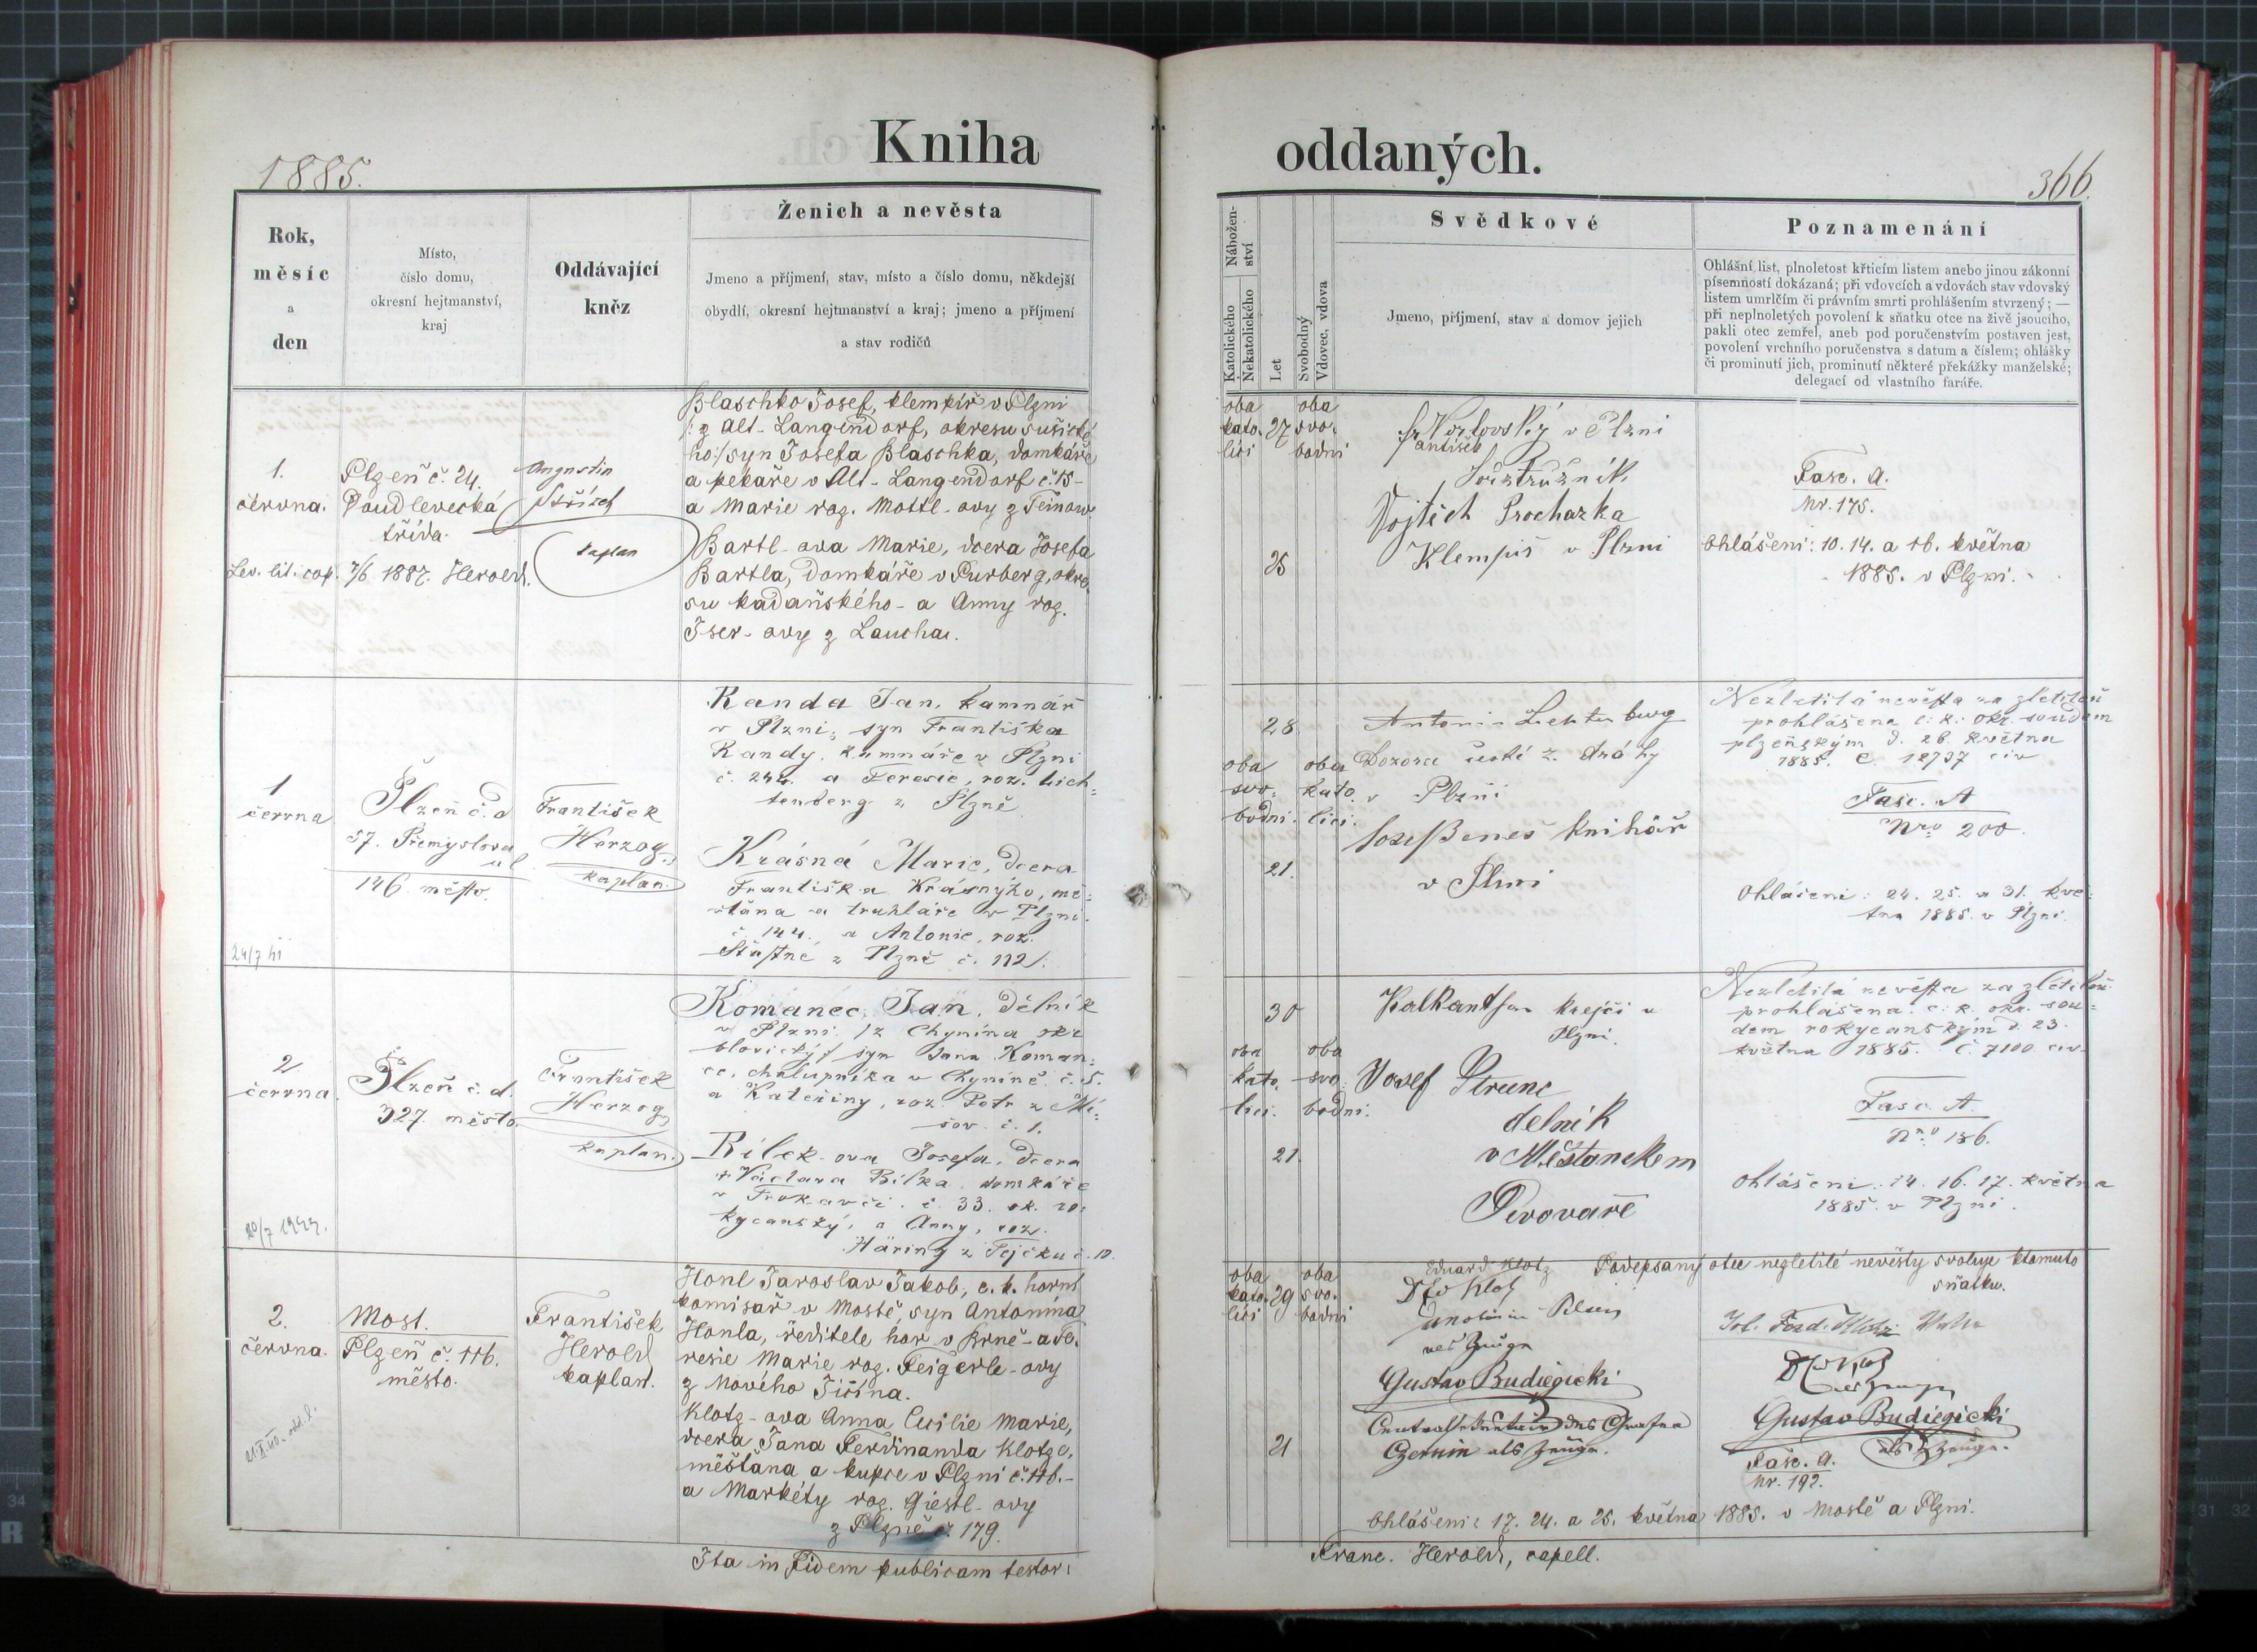 Kniha oddaných.
1885.
366.
Rok,
měsíc
a
den
Místo,
číslo domu,
okresní hejtmanství,
kraj
Oddávající
kněz
Ženich a nevěsta
Jmeno a příjmení, stav, místo a číslo domu, někdejší
obydlí, okresní hejtmanství a kraj; jmeno a příjmení
a stav rodičů
Nábožen-
ství
Katolického
Nekatolického
Let
Svobodný
Vdovec, vdova
Svědkové
Jmeno, příjmení, stav a domov jejich
Poznamenání
Ohlášní list, plnoletost křticím listem anebo jinou zákonni
písemností dokázaná; při vdovcích a vdovách stav vdovský
listem umrlčím či právním smrti prohlášením stvrzený; —
při neplnoletých povolení k sňatku otce na živě jsoucího,
pakli otec zemřel, aneb pod poručenstvím postaven jest,
povolení vrchního poručenstva s datum a číslem; ohlášky
či prominutí jich, prominutí některé překážky manželské;
delegací od vlastního faráře.
1.
června.
Lev. lit. cop. 7/6 1887. Herold.
Plzeň č. 24.
třída.
Augustin
kaplan
Blaschko Josef, klempíř v Plzni
/: z Alt-Langendorf, okresu sušické
ho:/ syn Josefa Blaschka, domkáře
a pekaře v Alt-Langendorf č. 15-
a Marie roz. Mottl-ovy z
Bartl-ova Marie, dcera Josefa
Bartla, domkáře v Purberg, okre.
su kadaňského- a Anny roz.
Iser-ovy z Lauchau.
oba
kato.
lici
27
oba
svo.
bodni
25
v Plzni
František
Vojtěch Prochazka
Klempíř v Plzni
Fasc. A.
Nr. 175.
Ohlášeni: 10. 14. a 16. května
1885. v Plzni.
1
června
24/7
Plzeň č. d
57. Přemyslova
ul
146. město.
František
Herzog
kaplan.
Randa Jan, kamnář
v Plzni, syn Františka
Randy, kamnáře v Plzni
č. 244. a Teresie, roz. Lich=
tenberg z Plzně
Krásná Marie, dcera
Františka Krásnýho, mě=
štána a truhláře v Plzni.
č. 144. a Antonie, roz.
Šťastné z Plzně č. 112/.
28
oba
svo=
bodni.
oba
kato.
lici.
21.
Antonin Lichtenberg
Dozorce české z. dráhy
v Plzni
Josef Beneš knihař
v Plzni
Nezletilá nevěsta za zletilou
prohlášena c. k. okr. soudem
plzeňským d. 26. května
1885. č. 12737 civ
Fasc. A
Nro 200.
Ohlášeni: 24. 25. a 31. kvě=
tna 1885. v Plzni.
2
června.
Plzeň č. d.
327. město.
František
Herzog
kaplan.
Komanec Jan, dělník
v Plzni /z Chynína okr
blovický/ syn Jana Koman=
ce, chalupníka v Chyníně č. 5.
a Kateřiny, roz. Petr z Mí=
šov. č. 1.
Bílek-ova Josefa, dcera
† Václava Bílka, domkáře
v Trokavci. č. 33. ok. ro=
kycanský, a Anny, roz.
Häring z Tejčku č. 10.
30
oba
kato.
lici.
oba
svo
bodni.
21.
Kalkant Jan krejči v
Plzni.
Josef Strunc
delnik
v Měšťanckem
Pivovaře
Nezletilá nevěsta za zletilou
prohlášena. c. k. okr. sou=
dem rokycanským d. 23.
května 1885. č. 7100 civ.
Fasc. A.
Nro 186.
Ohlášeni: 14. 16. 17. května
1885. v Plzni.
2.
června.
Most.
Plzeň č. 116.
město.
František
Herold
kaplan.
Honl Jaroslav Jakob, c. k. horní
komisař v Mostě, syn Antonína
Honla, ředitele hor v Brně- a Te.
resie Marie roz. Feigerle-ovy
z Nového Jičína.
Klotz-ova Anna Cecilie Marie,
dcera Jana Ferdinanda Klotze,
měšťana a kupce v Plzni č. 116.-
a Markéty roz. Giestl-ovy
z Plzně č. 179.
oba
kato.
lici
29
oba
svo.
bodni
21
Eduard Klotz
als Zeuge
Gustav Budiegicki
Centralsekretair des Grafen
Czernin als Zeuge.
Podepsaný otec nezletilé nevěsty svoluje ktomuto
sňatku.
Joh. Ferd. Klotz
Gustav Budiegicki
als Zeuge.
Fasc. A.
Nr. 192.
Ohlášeni: 17. 24. a 25. května 1885. v Mostě a Plzni.
Ita in Fidem publicam testor:
Franc. Herold, capell.